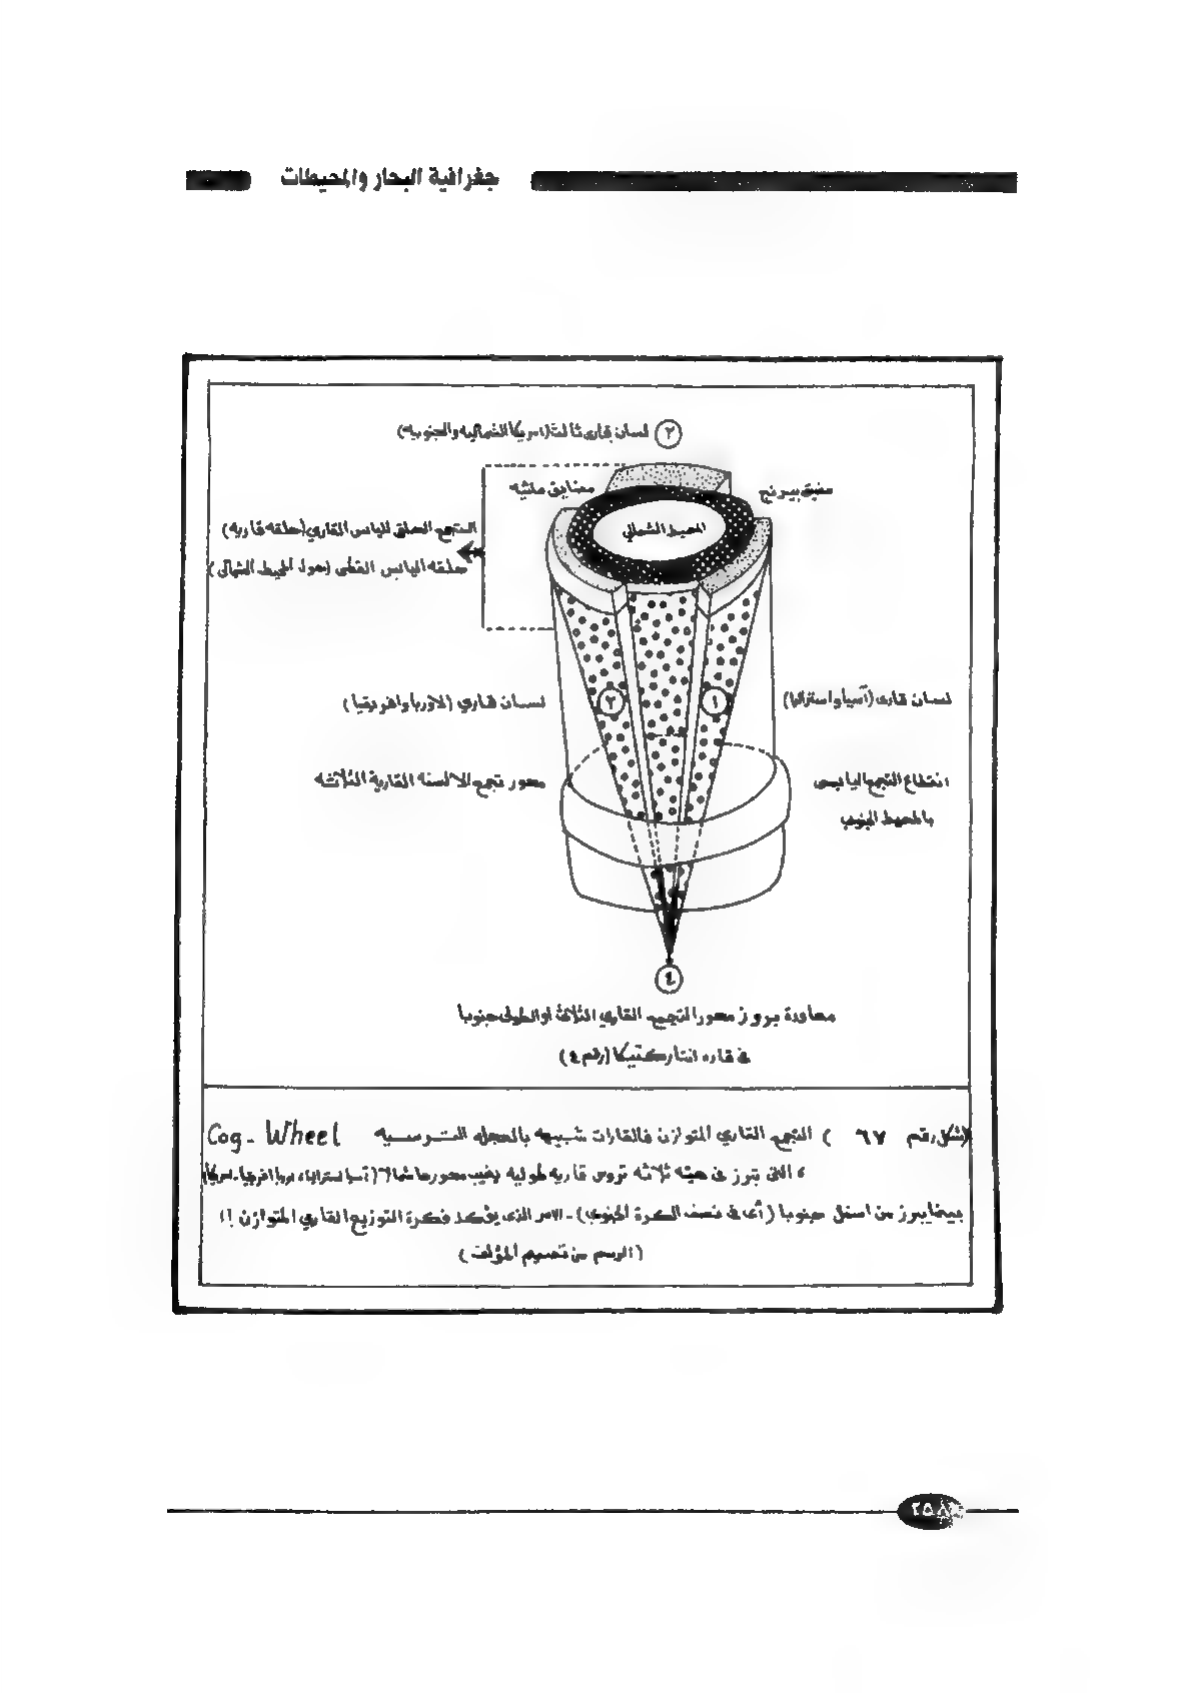 جغرافية البحار والمحيطات
٣ لسان قارى ثالث (امريكا الشماليه والجنوبيه)
مضيق بيرنج
مضايق مائيه
المحيط الشمالي
التجمع الحلقى لليابس القاري (حلقه قاريه)
حلقه اليابس القطبى (حول المحيط الشمالى)
لسان قارى (آسيا واستراليا)
١
٢
لسان قاري (لاوربا وافريقيا)
انقطاع التجمع اليابسى
بالمحيط الجنوبى
محور تجمع الالسنه القارية الثلاثه
٤
معاودة بروز محور التجمع القاري الثلاثى او الطولى جنوبا
فى قاره انتاركتيكا (رقم ٤)
(شكل رقم ٦٧) التجمع القاري المتوازن فالقارات شبيهه بالعجله الترسيه Cog - Wheel
، التى تبرز فى هيئه ثلاثه تروس قاريه طوليه يغيب محورها شمالا (آسيا استراليا، اوربا افريقيا، امريكا)
بينما يبرز من اسفل جنوبا (أى فى نصف الكرة الجنوبى) - الامر الذى يؤكد فكرة التوزيع القاري المتوازن !!
(الرسم من تصميم المؤلف)
٢٥٨